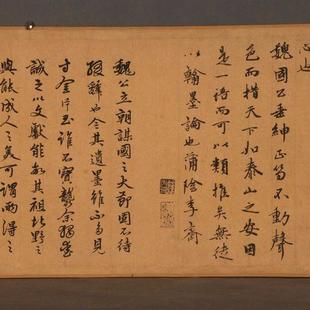 心也
魏國公垂紳正笏不動聲
色而措天下如泰山之安因
是一待而可以類推矣無徒
以翰墨論也蒲陰李齋
魏公立朝謀國之大節固不待
假辭也今其遺墨雖不多見
寸金片玉誰不寶襲余獨嘉
誠之以文獻能教其祖北野之
與能成人之美可謂兩得之